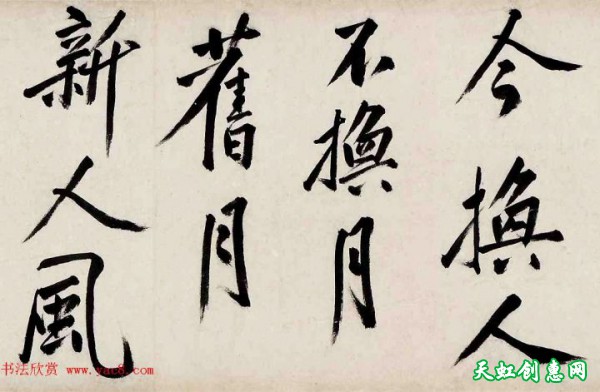 今換人
不換月
舊月
新人風
书法欣赏 www.yac8.com
天虹创惠网